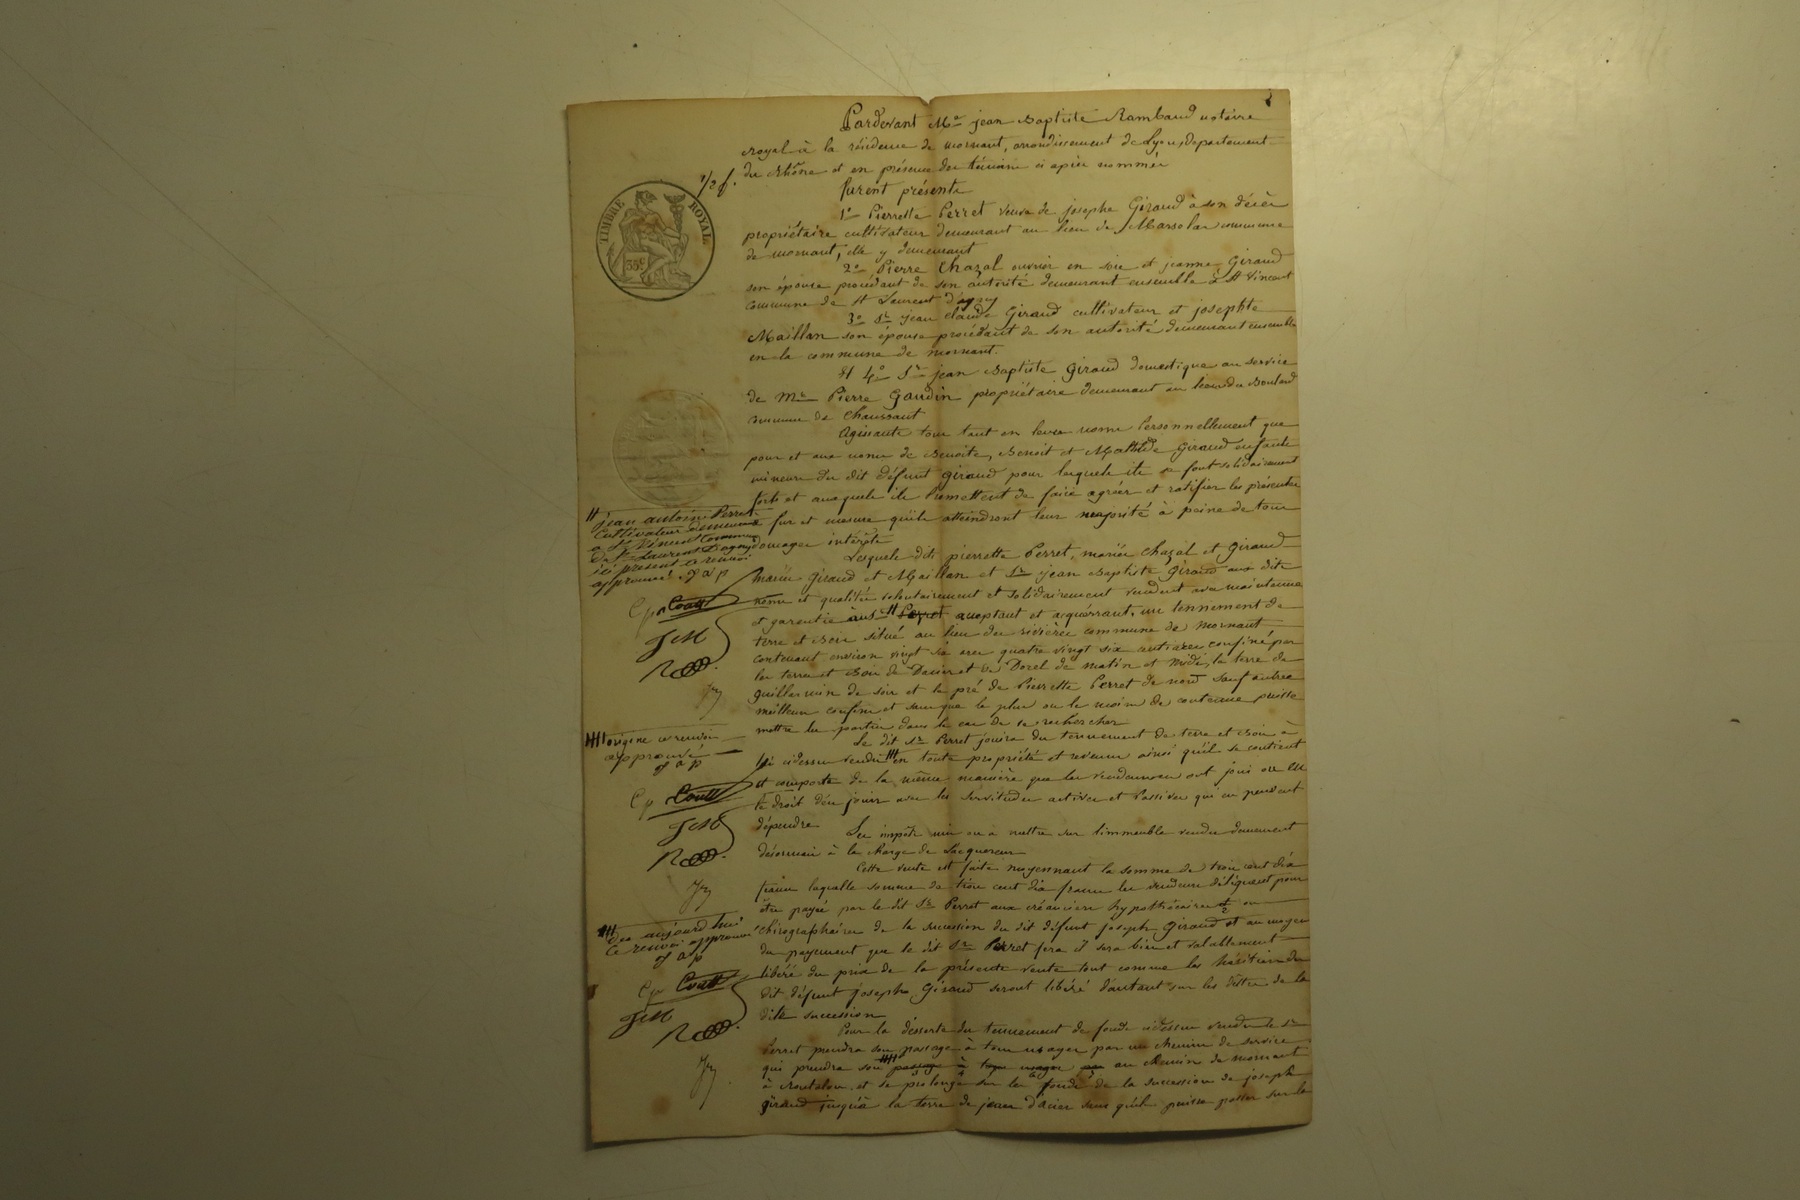 Pardevant Me jean Baptiste Rambaud notaire
royal à la résidence de mornant, arrondissement de Lyon, departement
du Rhône et en présence des témoins ci après nommés
furent présents
1/2 f.
TIMBRE ROYAL
35c
1o Pierrette Perret veuve de josephe Giraud à son décès
propriétaire cultivateur demeurant au lieu de Marsolas commune
de mornant, elle y demeurant
2o Pierre Chazal ouvrier en soie et jeanne Giraud
son épouse procédant de son autorité demeurant ensemble à St Vincent
commune de St Laurent d'agny
3o Sr jean claude Giraud cultivateur et josephte
Maillan son épouse procédant de son autorité demeurant ensemble
en la commune de mornant.
Et 4o Sr jean Baptiste Giraud domestique au service
de Mr Pierre Gaudin propriétaire demeurant au lieu du
commune de Chaussant
Agissants tous tant en leurs noms Personnellement que
pour et aux noms de Benoite, Benoit et Mathilde Giraud enfants
mineurs du dit défunt Giraud pour lesquels ils se font solidairement
forts et auxquels ils promettent de faire agréer et ratifier les présentes
a fur et mesure qu'ils atteindront leur majorité à peine de tous
domages intérêts
jean antoine Perret
Cultivateur demeurant
a St Vincent Commune
de St Laurent Dagny
ici présent ce renvoi
approuvé. g a p
Lesquels dits pierrette Perret, mariés Chazal et Giraud
mariés Giraud et Maillan et Sr jean Baptiste Giraud aux dits
noms et qualités volontairement et solidairement vendent avec maintenue
et garentie aus Perret acceptant et acquérant, un tennement de
terre et Bois situé au lieu des rivières commune de mornant
contenant environ vingt six ares quatre vingt six centiares confiné par
les terre et Bois de Dacier et de Dorel de matin et midi, la terre de
guillermin de soir et le pré de Pierrette Perret de nord sauf autres
meilleurs confins et sans que le plus ou le moins de contenue puisse
mettre les parties dans le cas de se rechercher
Cp Coutt
JCM
Le dit Sr Perret jouira du tennement de terre et Bois à
lui cidessus vendu en toute propriété et revenu ainsi qu'il se contient
et comporte de la même manière que les vendeurs en ont joui ou eu
le droit d'en jouir avec les servitudes actives et Passives qui en peuvent
dépendre
origine ce renvoi
approuvé
g a p
Cp Coutt
JCM
Les impôts mis ou à mettre sur l'immeuble vendu demeurent
désormais à la charge de l'acquereur
Cette vente est faite moyennant la somme de trois cent dix
francs laquelle somme de trois cent dix francs les vendeurs délèguent pour
être payée par le dit Sr Perret aux créanciers hypothécaires ou
chirographaires de la succession du dit défunt joseph Giraud et au moyen
du payement que le dit Sr Perret fera il sera bien et valablement
libéré du prix de la présente vente tout comme les héritiers du
dit défunt josephe Giraud seront libéré d'autant sur les dettes de la
dite succession
des aujourd'hui
ce renvoi approuvé
g a p
Cp Coutt
JCM
Pour la desserte du tennement de fonds cidessus vendu le Sr
Perret prendra son passage à tous usages par un chemin de service
qui prendra son passage à tous usages par au chemin de mornant
à et se prolonge sur le fonds de la succession de joseph
giraud jusquà la terre de jean d'acier sans qu'ils puisse passer sur la